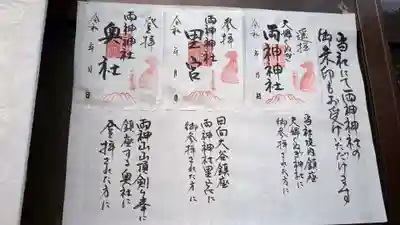 当社にて両神神社の
御朱印もお受けいただけます
遥拝
両神神社
令和 年 月 日
当社境内鎮座
御参拝された方に
参拝
両神神社
里宮
令和 年 月 日
日向大谷鎮座
両神神社里宮に
御参拝された方に
登拝
両神神社
奥社
令和 年 月 日
両神山山頂剣ヶ峰に
鎮座する奥社に
登拝された方に